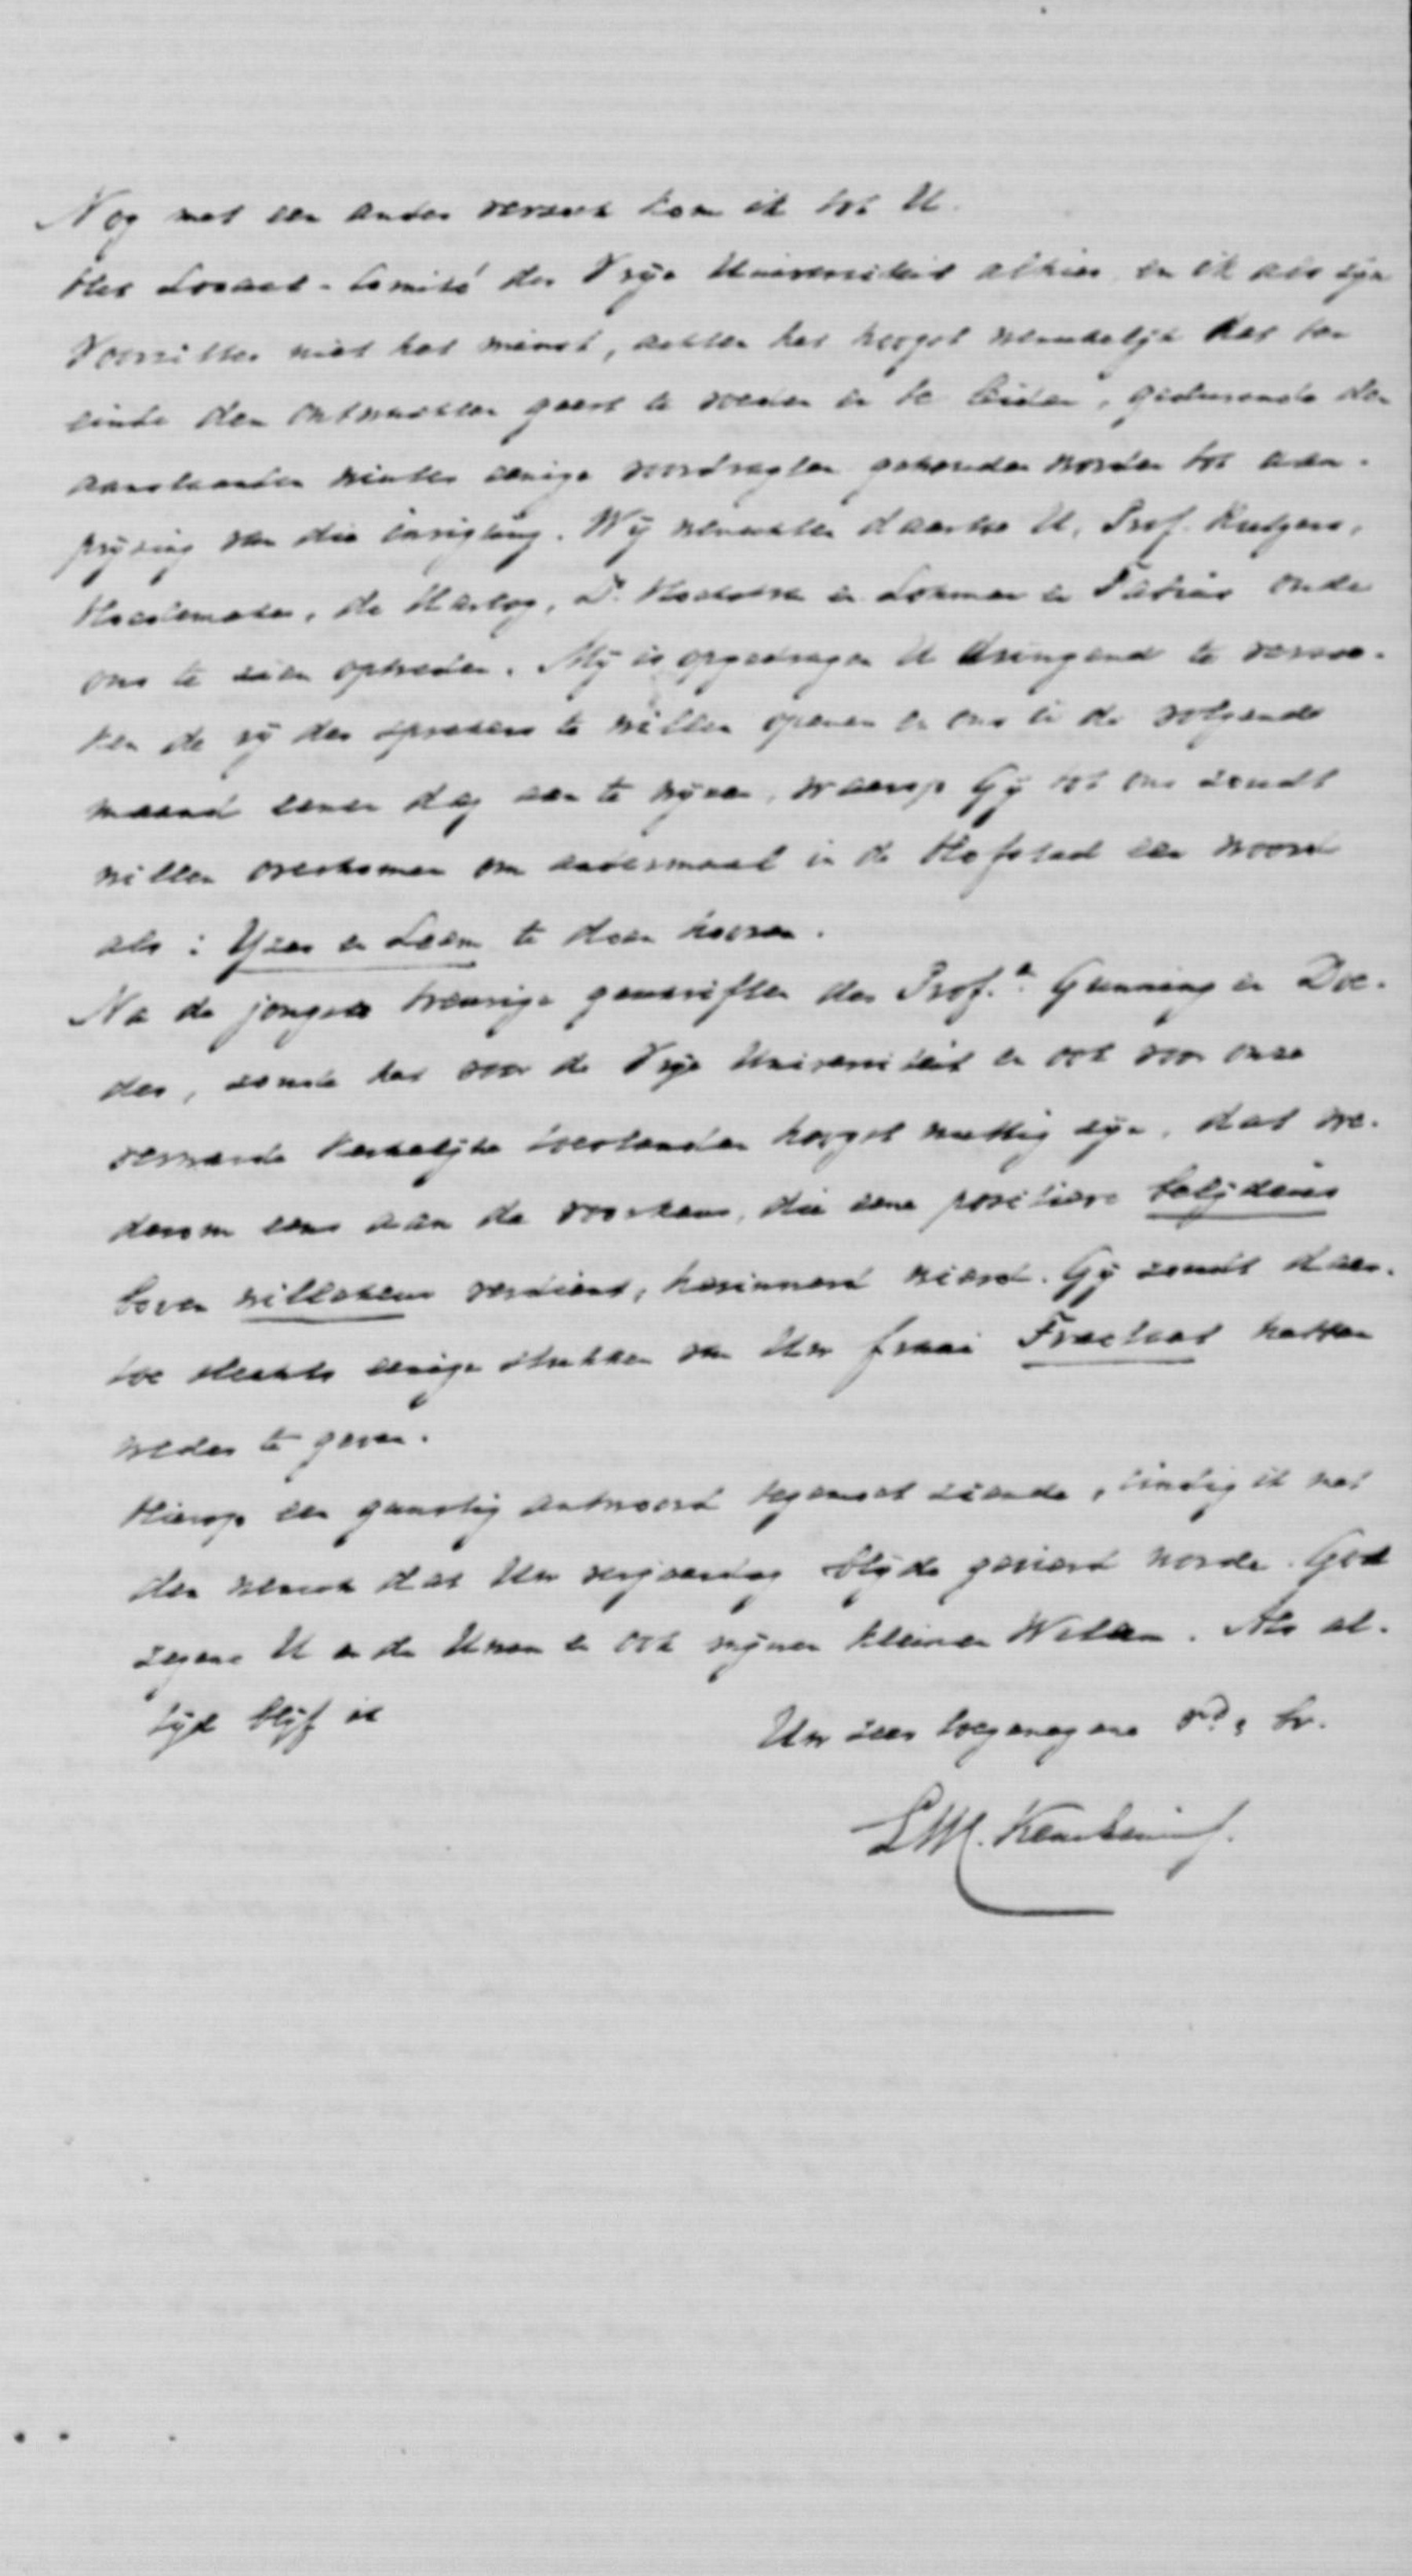 Nog met een ander verzoek kom ik tot U.
Het Locaal-Comité der Vrije Universiteit alhier en ik als zijn
Voorzitter niet het minst, achten het hoogst wenschelijk dat ten
einde den ontwaakten geest te voeden en te leiden, gedurende den
aanstaanden winter eenige voordragten gehouden worden tot aan-
prijzing van die inrigting. Wij wenschten daartoe U, Prof. Rutgers,
Hoedemaker, de Hartog, Dr. en Lohman en Fabius onder
ons te zien optreden. Mij is opgedragen U dringend te verzoe-
ken de rij der sprekers te willen openen en ons in de volgende
maand eenen dag aan te wijzen, waarop Gij tot ons zoudt
willen overkomen om andermaal in de Hofstad een woord
als: Yzer en Leem te doen hooren.
Na de jongste treurige geschriften der Prof.n Gunning en Doe-
des, zoude het voor de Vrije Universiteit en ook voor onze
verwarde kerkelijke toestanden hoogst nuttig zijn, dat we-
derom eens aan de voorkeus, die eene positieve belijdenis
boven willekeur verdient, herinnerd wierd. Gij zoudt daar-
toe slechts eenige stukken van Uw fraai Tractaat hebben
weder te geven.
Hierop een gunstig antwoord tegemoet ziende, eindig ik met
den wensch dat Uw verjaardag blijde gevierd worde. God
zegene U en de Uwen en ook mijnen kleinen Willem. Als al-
tijd blijf ik
Uw zeer toegenegene vr. & br.
L.M.